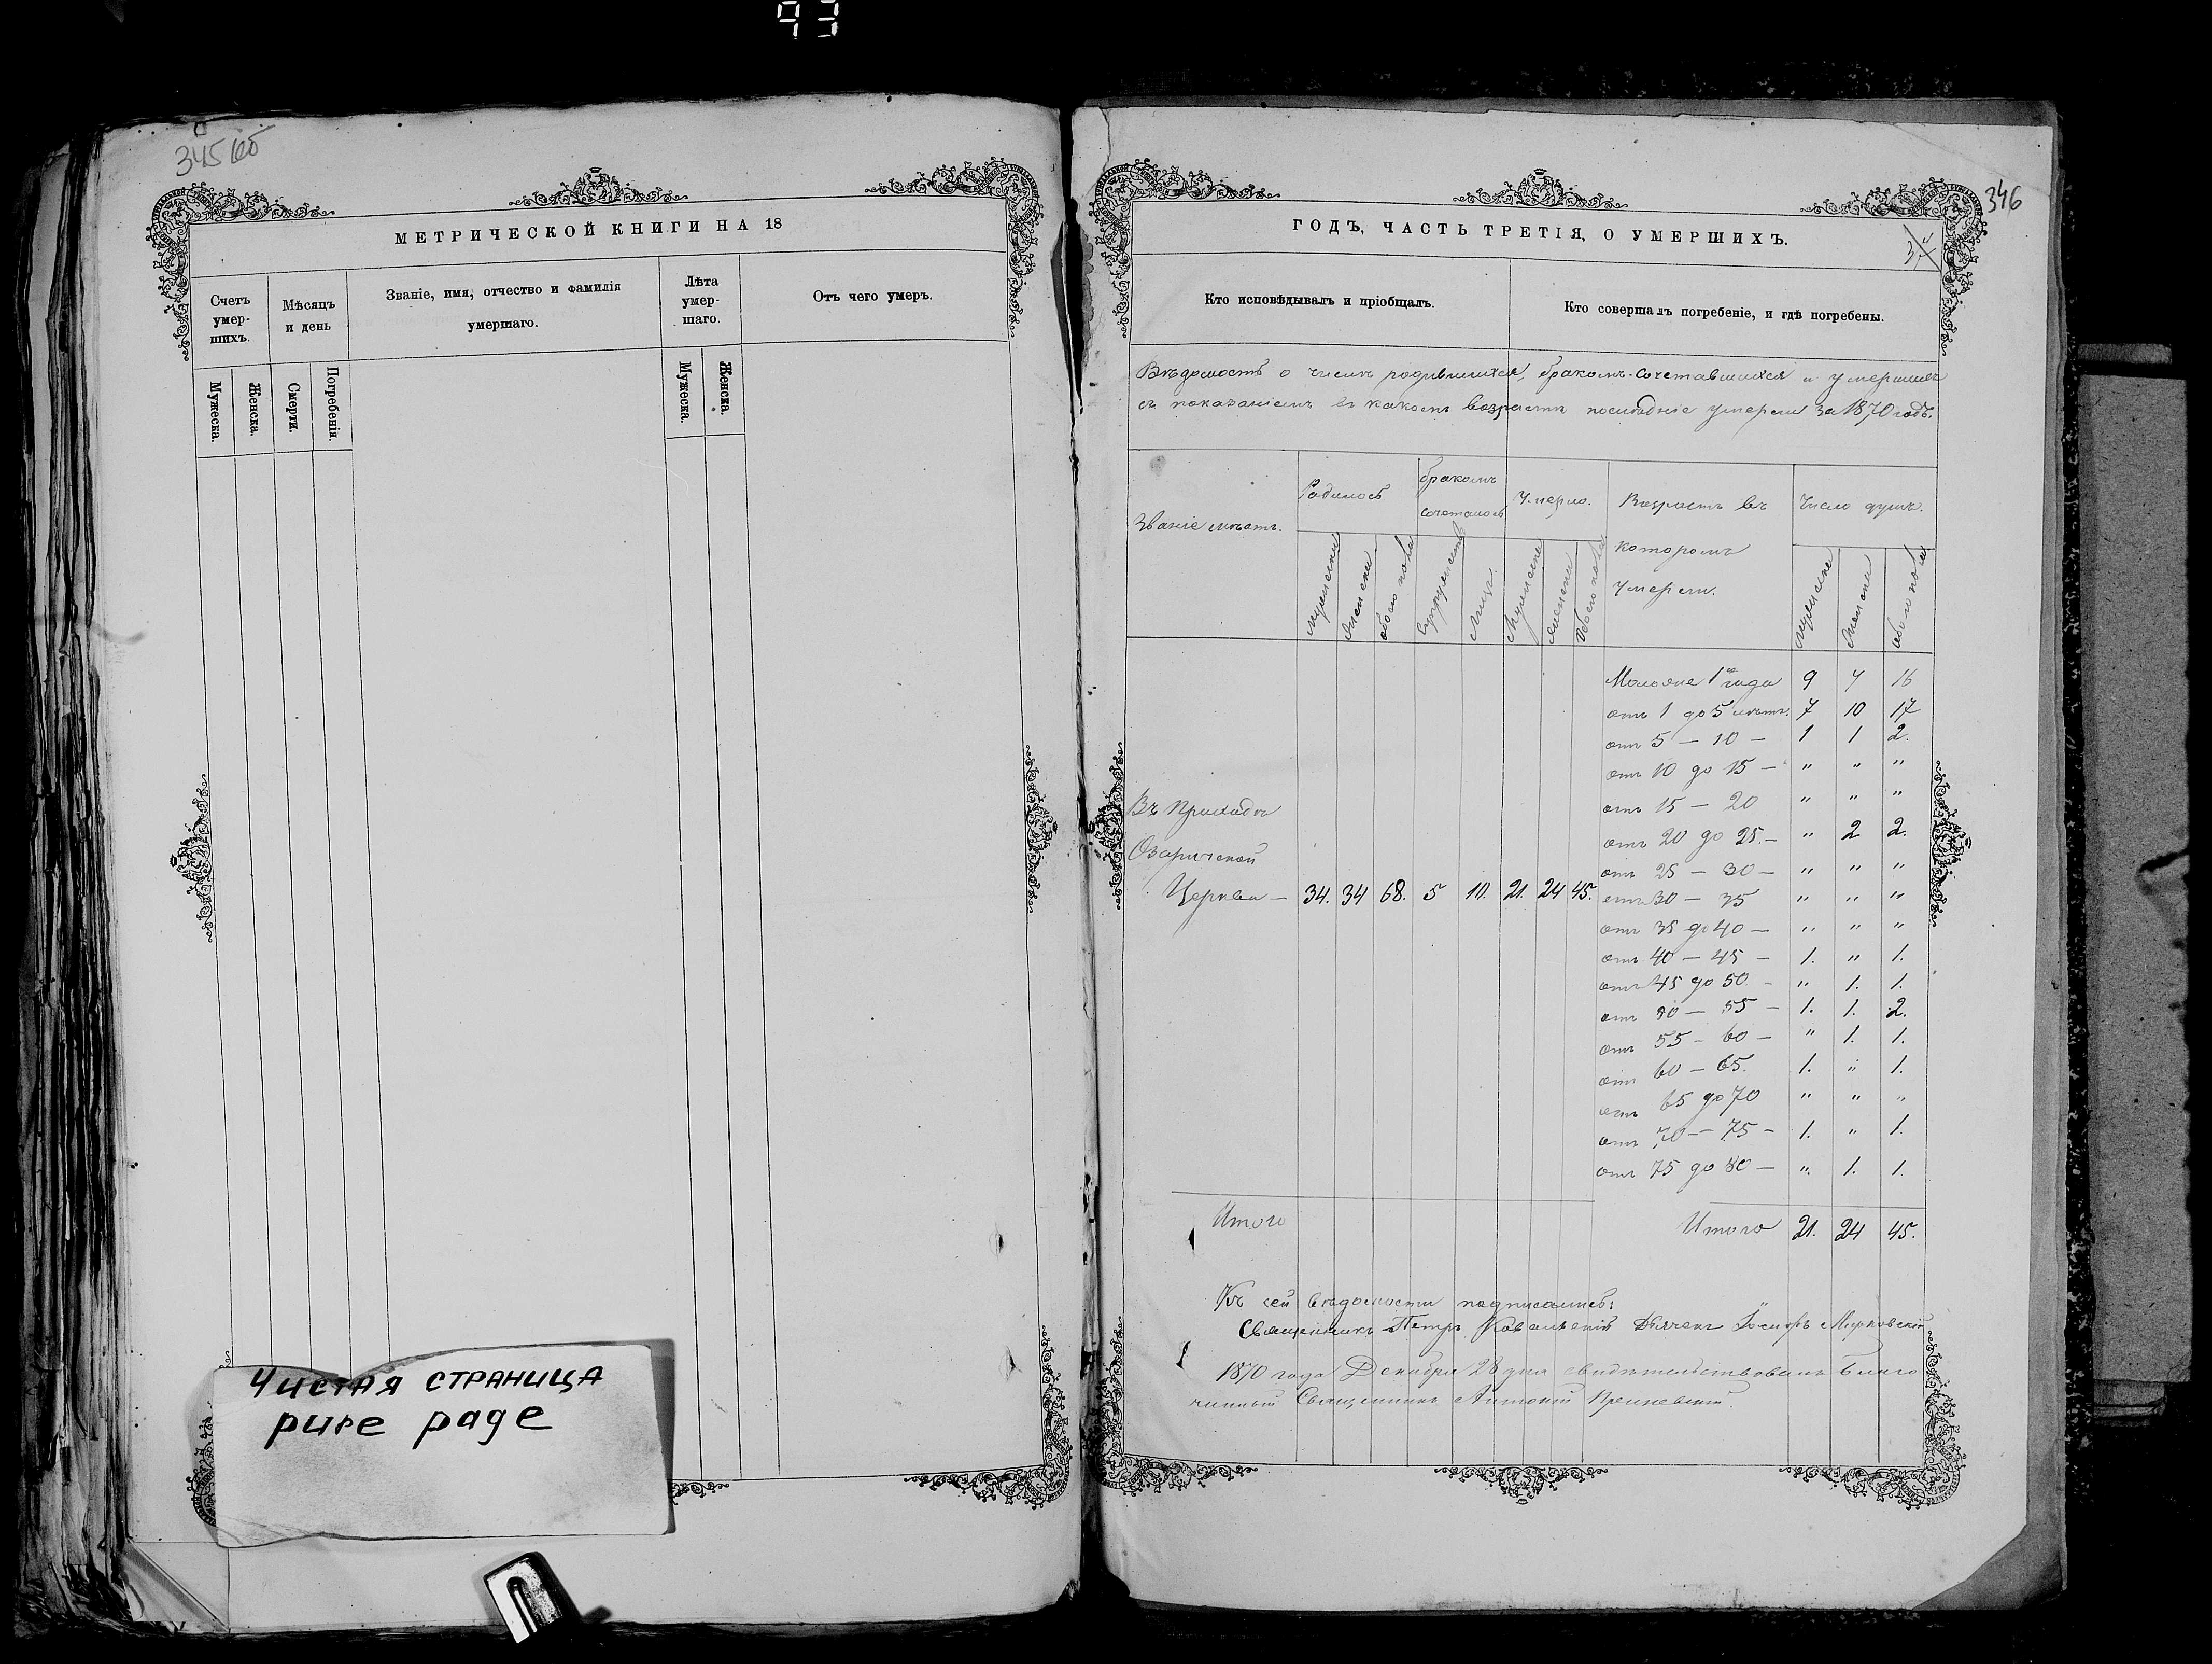 93
345 об
МЕТРИЧЕСКОЙ КНИГИ НА 18
Счетъ умер-шихъ.
Мужеска.
Женска.
Мѣсяцъ и день
Смерти.
Погребенія.
Званіе, имя, отчество и фамилія
умершаго.
Лѣта умер-шаго.
Мужеска.
Женска.
Отъ чего умеръ.
Чистая страница
pure page
346
ГОДЪ, ЧАСТЬ ТРЕТІЯ, О УМЕРШИХЪ.
Кто исповѣдывалъ и пріобщалъ.
Кто совершалъ погребеніе, и гдѣ погребены.
Вѣдомость о числѣ родившихся, бракомъ-сочетавшихся и умершихъ
съ показаніемъ въ какомъ возрастѣ послѣдніе умерли за 1870 годъ.
Званіе мѣстъ.
Родилось
мужеска
женска
обоего пола
бракомъ сочеталось
супружествъ
лицъ.
Умерло.
Мужеска
женска
Обоего пола
Возрастъ въ
которомъ
умерли.
Число душъ.
мужеска
женска
обоего пола
Моложе 1го года 9 7 16
отъ 1 до 5 лѣтъ. 7 10 17
отъ 5 — 10 — 1 1 2.
отъ 10 до 15 — " " "
отъ 15 — 20 " " "
отъ 20 до 25. — " 2 2.
отъ 25 — 30 — " " "
Въ Приходѣ
Озаричской
Церкви — 34. 34 68. 5 10. 21. 24 45.
отъ 30 — 35 " " "
отъ 35 до 40 — " " "
отъ 40 — 45 — 1. " 1.
отъ 45 до 50. — " 1. 1.
отъ 50 — 55 — 1. 1. 2.
отъ 55 — 60 — " 1. 1.
отъ 60 — 65. 1. " 1.
отъ 65 до 70 " " "
отъ 70 — 75 — 1. " 1.
отъ 75 до 80 — " 1. 1.
Итого
Итого 21. 24 45.
Къ сей вѣдомости подписались:
Священникъ Петръ Ковальскій Дьячекъ Іосифъ
1870 года Декабря 28 дня свидѣтельствовалъ Благо
чинный Священникъ Антоній